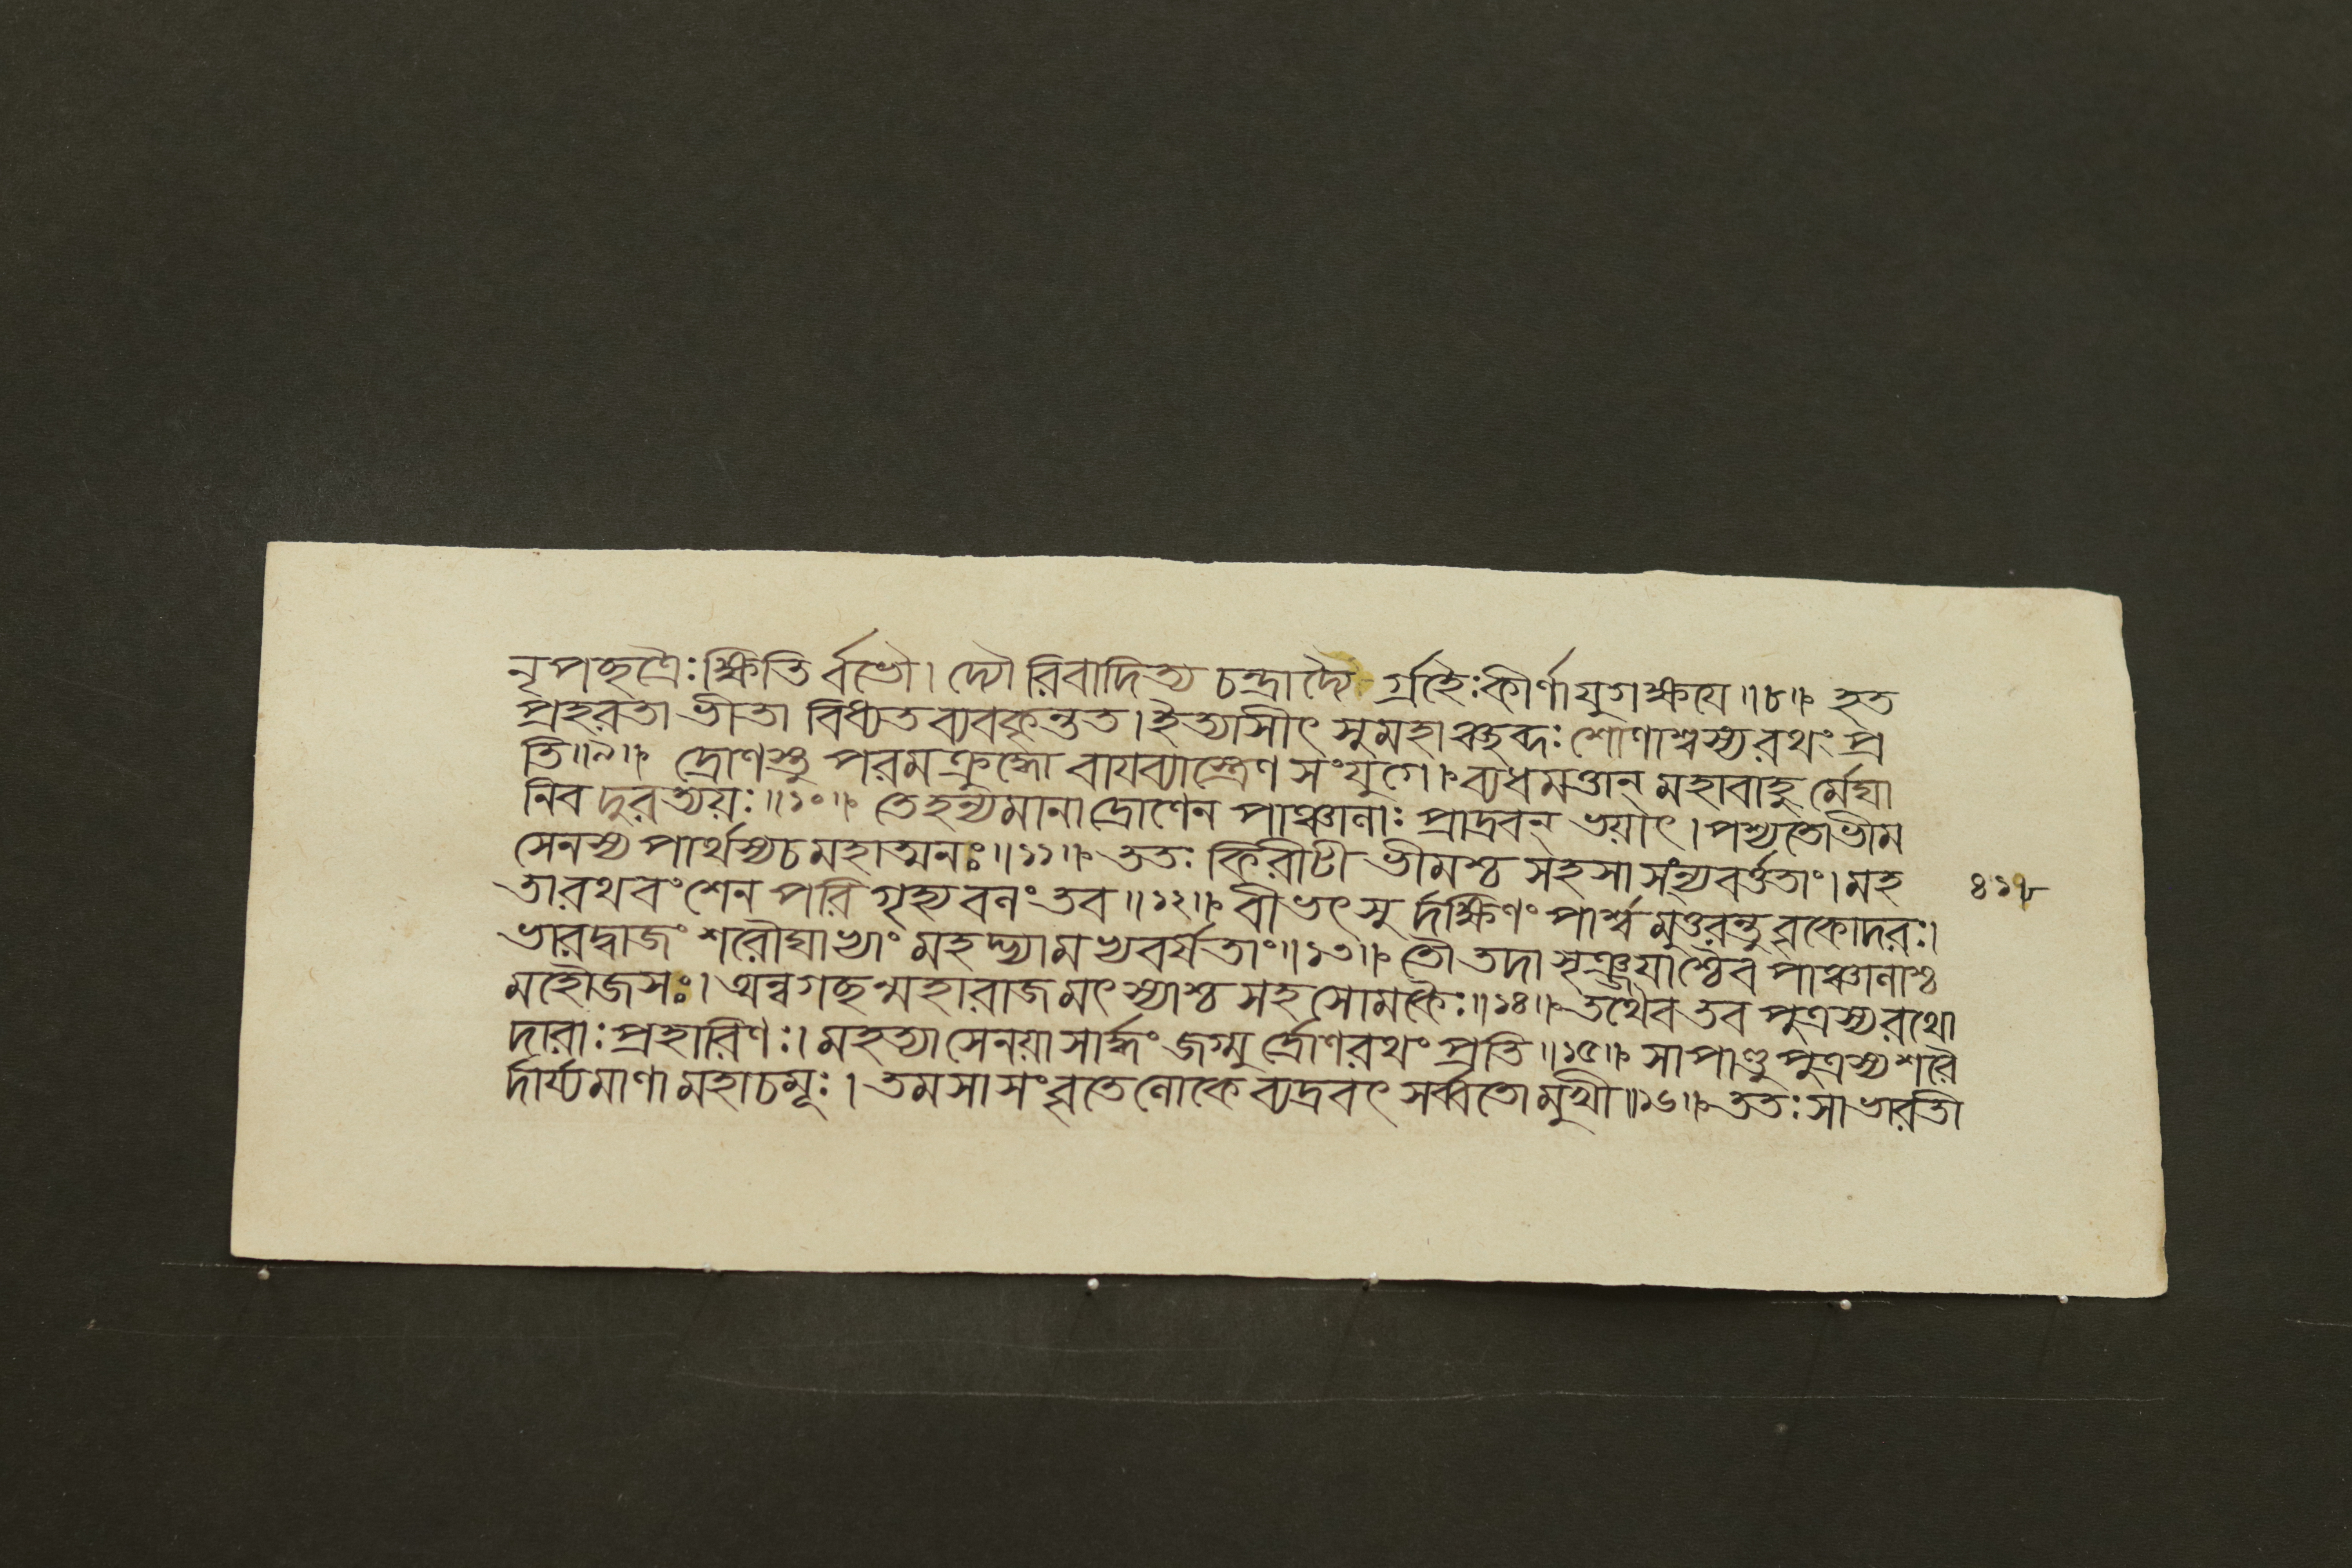 নৃপছত্রৈঃ ক্ষিতির্বভৌ। দ্যৌরিবাদিত্যচন্দ্রাদ্যৈর্গ্রহৈঃ কীর্ণা যুগক্ষয়ে॥৮॥ হত
প্রহরতা ভীতা বিধ্যত ব্যবকৃন্তত। ইত্যাসীৎ সুমহাঞ্ছব্দঃ শোণাশ্বস্য রথং প্র
তি॥৯॥ দ্রোণস্তু পরমক্রুদ্ধো বায়ব্যাস্ত্রেণ সংযুগে। ব্যধমত্তান্ মহাবাহুর্মেঘা
নিব দুরত্যয়ঃ॥১০॥ তে হন্যমানা দ্রোণেন পাঞ্চালাঃ প্রাদ্রবন্ ভয়াৎ। পশ্যতো ভীম
সেনস্য পার্থস্য চ মহাত্মনঃ॥১১॥ ততঃ কিরীটী ভীমশ্চ সহসা সংন্যবর্ত্ততাং। মহ
তা রথবংশেন পরিগৃহ্য বলং তব॥১২॥ বীভৎসুর্দক্ষিণং পার্শ্বমুত্তরন্তু বৃকোদরঃ।
৪১৮
ভারদ্বাজং শরৌঘাভ্যাং মহদ্ভ্যামভ্যবর্ষতাং॥১৩॥ তৌ তদা সৃঞ্জয়াশ্চৈব পাঞ্চালাশ্চ
মহৌজসঃ। অন্বগছন্মহারাজ মৎস্যাশ্চ সহ সোমকৈঃ॥১৪॥ তথৈব তব পুত্রস্য রথো
দারাঃ প্রহারিণঃ। মহত্যা সেনয়া সার্দ্ধং জগ্মুর্দ্রোণরথং প্রতি॥১৫॥ সা পাণ্ডুপুত্রস্য শরৈ
র্দার্য্যমাণা মহাচমূঃ। তমসা সংবৃতে লোকে ব্যদ্রবৎ সর্ব্বতোমুখী॥১৬॥ ততঃ সা ভারতী